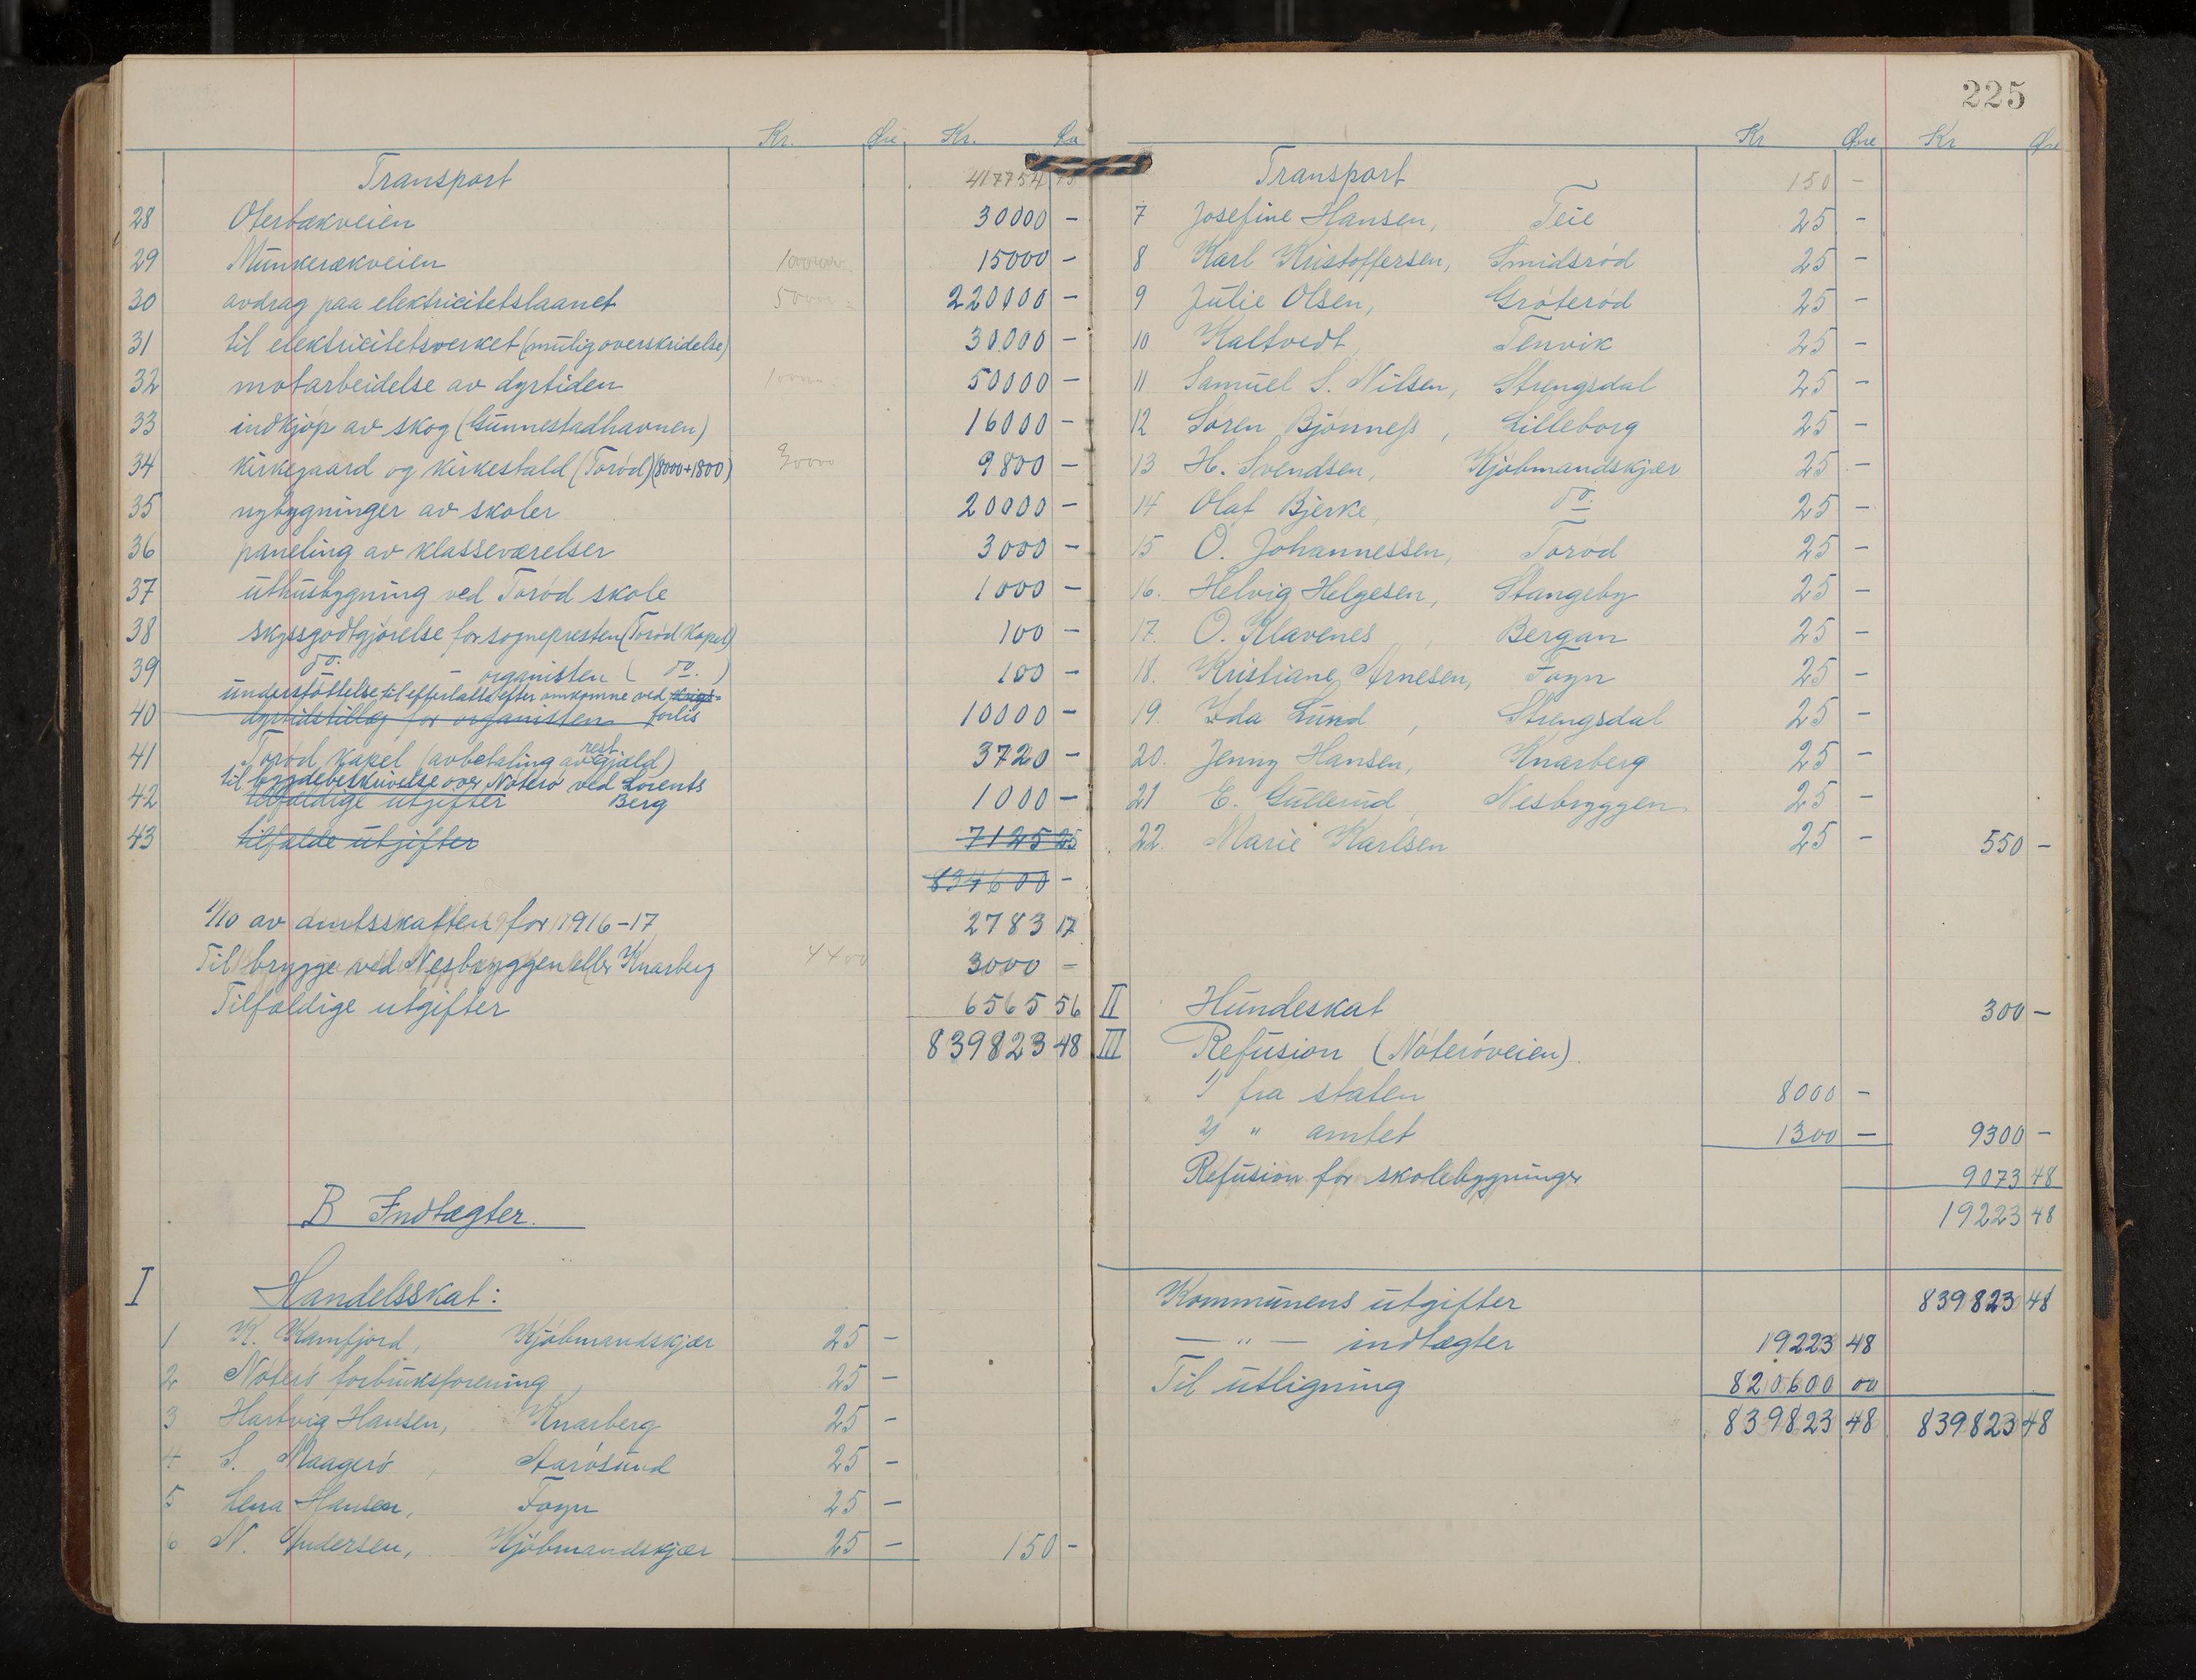 Kr. Øre Kr. Øre
Transport 417754 75
28 Oterbækveien 30000 -
29 Munkerækveien 15000 -
30 avdrag paa elektricitetslaanet 220000 -
31 til elektricitetsverket (mulig overskridelse) 30000 -
32 motarbeidelse av dyrtiden 50000 -
33 indkjøp av skog (Gunnestadhavnen) 16000 -
34 kirkegaard og kirkestald (Torød) (8000+1800) 30000 9800 -
35 nybygninger av skoler 20000 -
36 paneling av klasseværelser 3000 -
37 uthusbygning ved Torød skole 1000 -
38 skyssgodtgjørelse for sognepresten (Torød Kapel) 100 -
39 do. - organisten ( do. ) 100 -
understøttelse til efterlatte efter omkomne ved krigs-
40 dyrtidstillæg for organisten forlis 10000 -
41 Torød Kapel (avbetaling av rest gjæld) 3720 -
til bygdebeskrivelse over Nøterø ved Lorents
42 tilfældige utgifter Berg 1000 -
43 tilfælde utgifter 7125 25
834600 -
1/10 av amtsskatten for 1916-17 2783 17
Til brygge ved Nesbryggen eller Knarberg 4400 3000 -
Tilfældige utgifter 6565 56
839823 48
B Indtægter.
I Handelsskat:
1 K. Kamfjord, Kjøbmandskjær 25 -
2 Nøterø forbruksforening, 25 -
3 Hartvig Hansen, Knarberg 25 -
4 S. Maagerø, Aarøsund 25 -
5 Lena Hansen, Fogn 25 -
6 N. Andersen, Kjøbmandskjær 25 - 150 -
225
Kr Øre Kr Øre
Transport 150 -
7 Josefine Hansen, Teie 25 -
8 Karl Kristoffersen, Smidsrød 25 -
9 Julie Olsen, Grøterød 25 -
10 Kaltvedt, Tenvik 25 -
11 Samuel S. Nilsen, Strengsdal 25 -
12 Søren Bjønness, Lilleborg 25 -
13 H. Svendsen, Kjøbmandskjær 25 -
14 Olaf Bjerke, do. 25 -
15 O. Johannessen, Torød 25 -
16. Helvig Helgesen, Stangeby 25 -
17. O. Klavenes, Bergan 25 -
18. Kristiane Arnesen, Fogn 25 -
19. Ida Lund, Strengsdal 25 -
20. Jenny Hansen, Knarberg 25 -
21 E. Gullerud, Nesbryggen 25 -
22. Marie Karlsen 25 - 550 -
II Hundeskat 300 -
III Refusion (Nøterøveien).
1) fra staten 8000 -
2) " amtet 1300 - 9300 -
Refusion for skolebygninger 9073 48
19223 48
Kommunens utgifter 839823 48
— " — indtægter 19223 48
Til utligning 820600 00
839823 48 839823 48